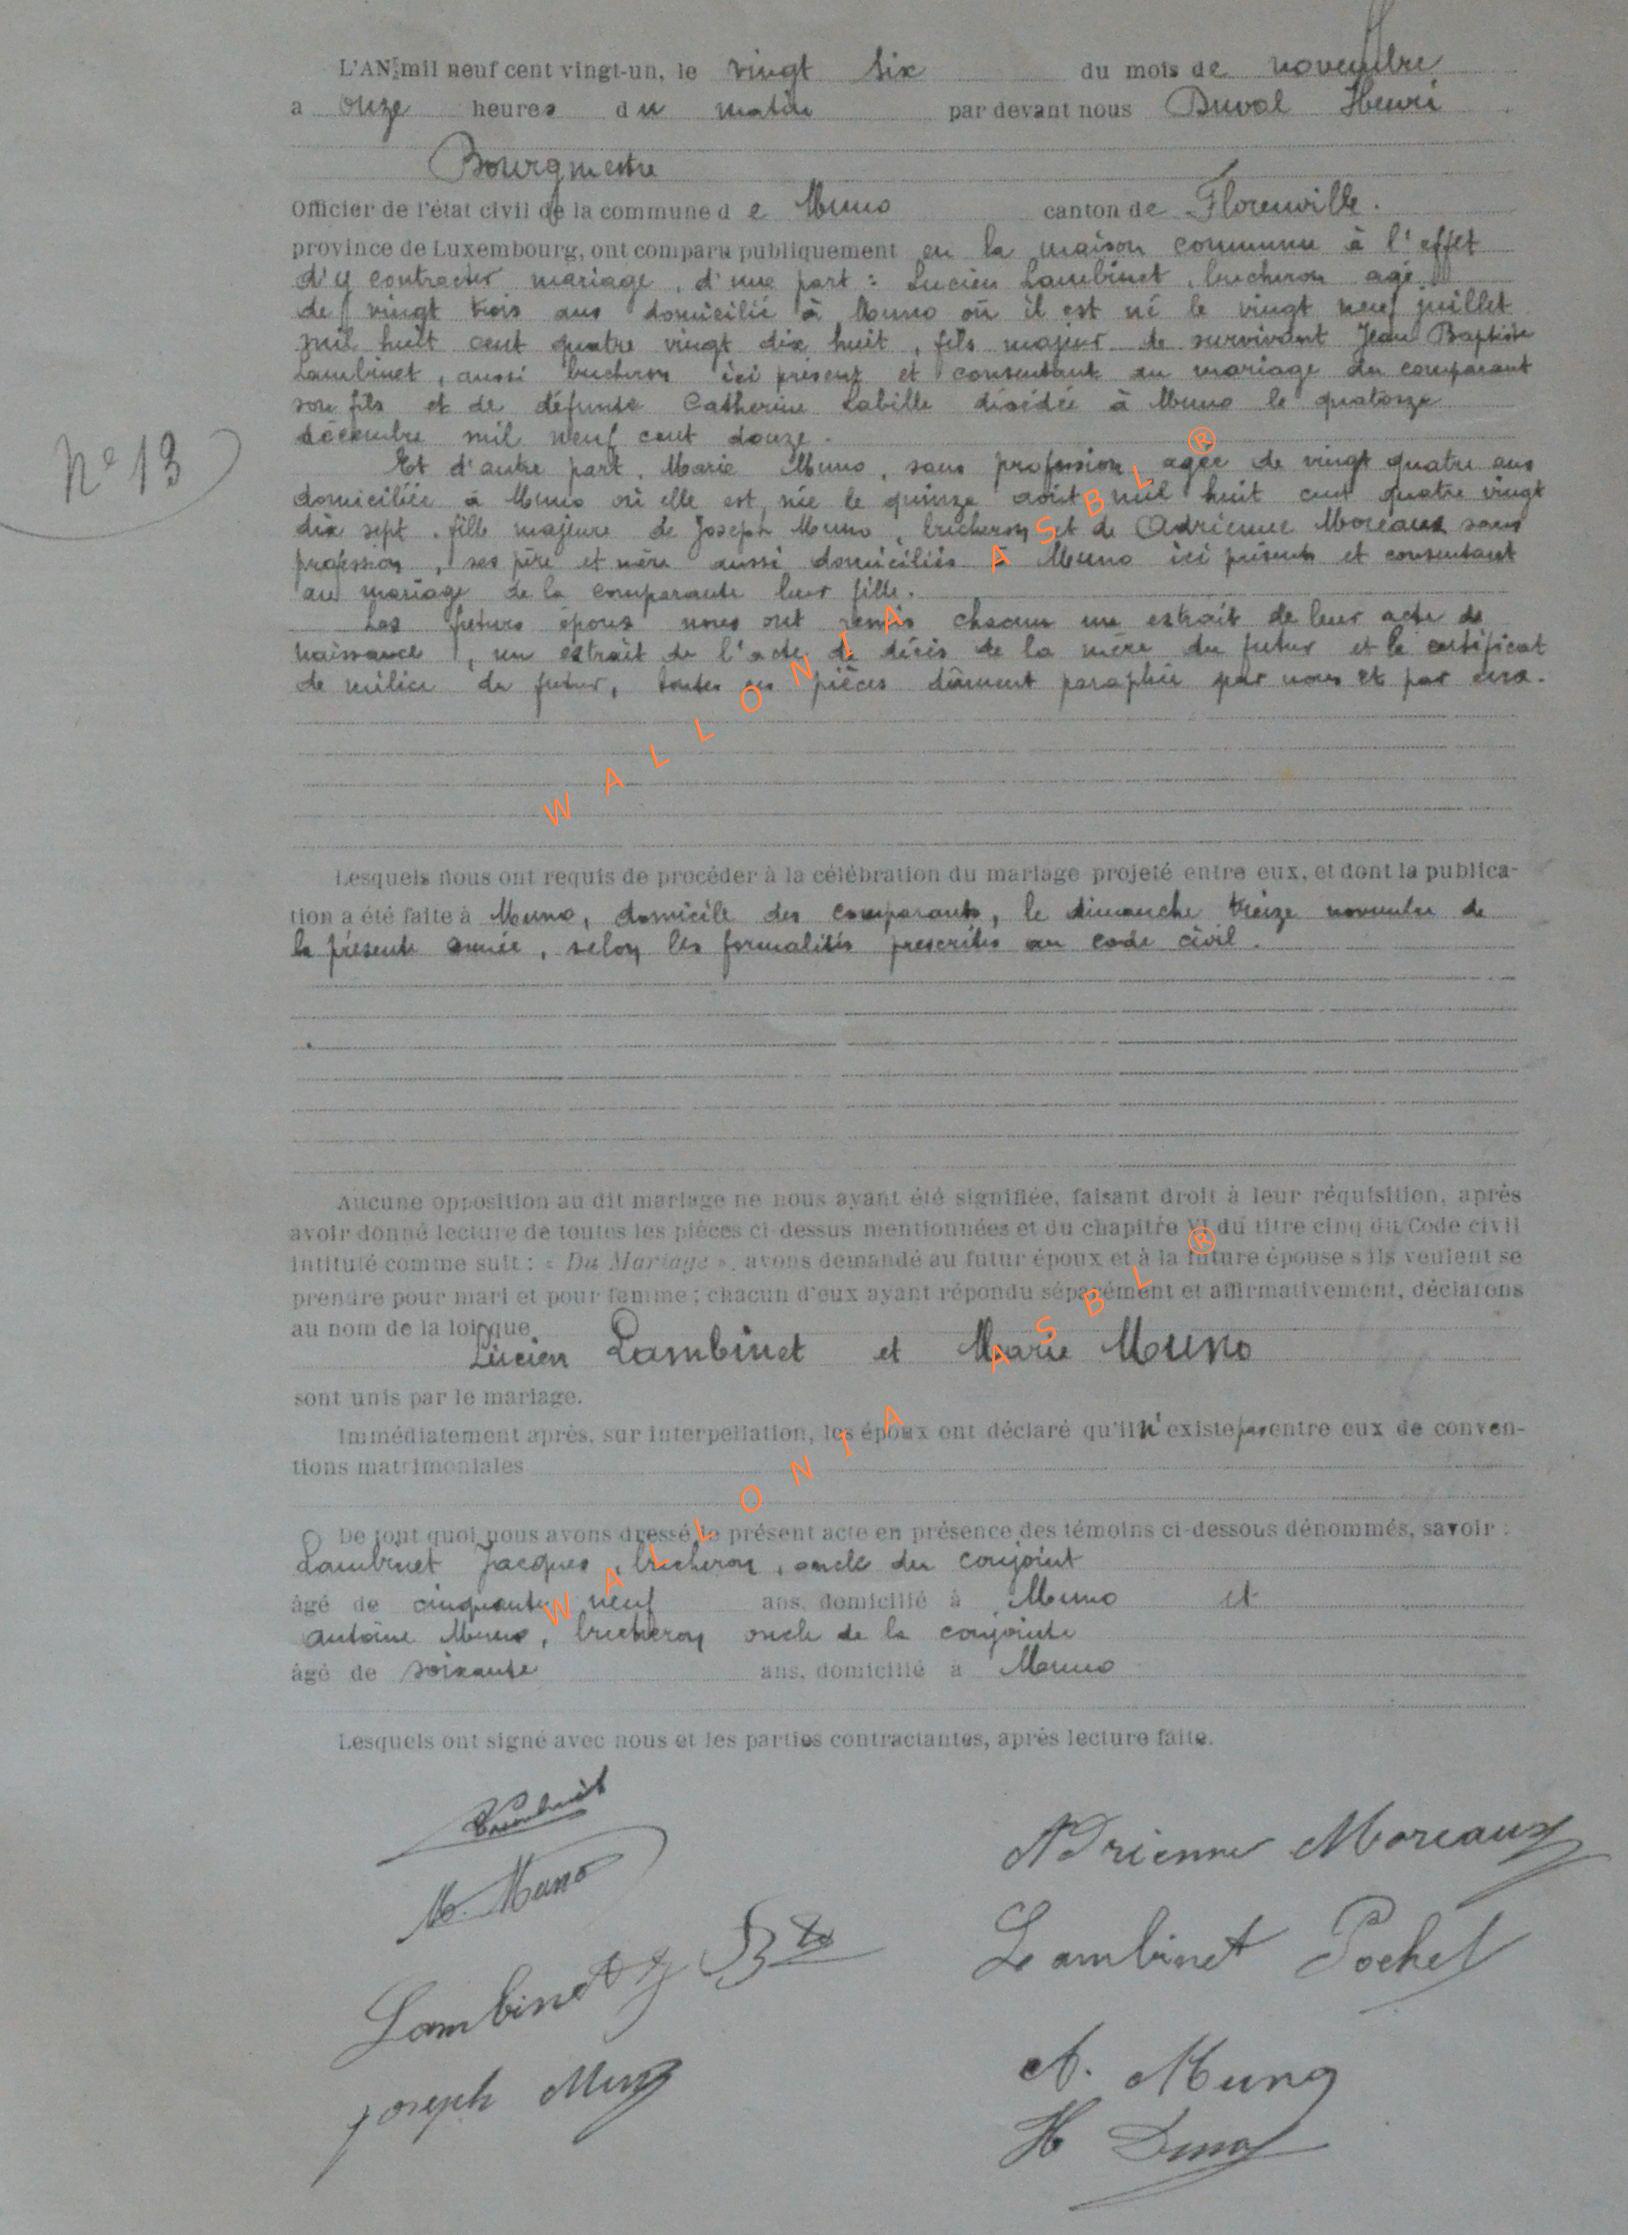 L'AN mil neuf cent vingt-un, le vingt six du mois de novembre
a onze heures du matin par devant nous Duval Henri
Bourgmestre
Officier de l'état civil de la commune de Muno canton de Florenville.
province de Luxembourg, ont comparu publiquement en la maison commune à l'effet
d'y contracter mariage, d'une part : Lucien Lambinet, bucheron agé
de vingt trois ans domicilié à Muno où il est né le vingt neuf juillet
mil huit cent quatre vingt dix huit, fils majeur de survivant Jean Baptiste
Lambinet, aussi bucheron ici présent et consentant au mariage du comparant
son fils et de défunte Catherine Labille décédée à Muno le quatorze
décembre mil neuf cent douze.
N° 13
Et d'autre part, Marie Muno, sans profession, agée de vingt quatre ans
domiciliée à Muno où elle est née le quinze août mil huit cent quatre vingt
dix sept, fille majeure de Joseph Muno, bucheron et de Adrienne Moreaux sans
profession, ses père et mère aussi domiciliés à Muno ici présents et consentant
au mariage de la comparante leur fille.
Les futurs époux nous ont remis chacun un extrait de leur acte de
naissance, un extrait de l'acte de décès de la mère du futur et le certificat
de milice du futur, toutes ces pièces dûment paraphées par nous et par eux.
Lesquels nous ont requis de procéder à la célébration du mariage projeté entre eux, et dont la publica-
tion a été faite à Muno, domicile des comparants, le dimanche treize novembre de
la présente année, selon les formalités prescrites au code civil.
Aucune opposition au dit mariage ne nous ayant été signifiée, faisant droit à leur réquisition, après
avoir donné lecture de toutes les pièces ci-dessus mentionnées et du chapitre VI du titre cinq du Code civil
intitulé comme suit : « Du Mariage », avons demandé au futur époux et à la future épouse s'ils veulent se
prendre pour mari et pour femme ; chacun d'eux ayant répondu séparément et affirmativement, déclarons
au nom de la loi que
Lucien Lambinet et Marie Muno
sont unis par le mariage.
Immédiatement après, sur interpellation, les époux ont déclaré qu'il n'existe pas entre eux de conven-
tions matrimoniales
De tout quoi nous avons dressé le présent acte en présence des témoins ci-dessous dénommés, savoir :
Lambinet Jacques, bucheron, oncle du conjoint
âgé de cinquante neuf ans, domicilié à Muno et
Antoine Muno, bucheron oncle de la conjointe
âgé de soixante ans, domicilié à Muno
Lesquels ont signé avec nous et les parties contractantes, après lecture faite.
Lambinet
Adrienne Moreaux
M. Muno
Lambinet J Bte
Lambinet Pochet
Joseph Muno
A. Muno
H Duval
WALLONIA ASBL ®
WALLONIA ASBL ®